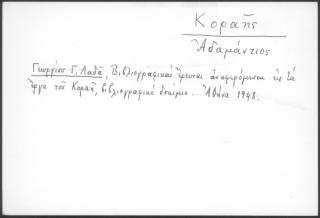 Κοραῆς
Ἀδαμάντιος
Γεωργίου Γ. Λαδᾶ, Βιβλιογραφικαί ἔρευναι ἀναφερόμεναι εἰς τά
ἔργα τοῦ Κοραῆ, βιβλιογραφικό δοκίμιο ... Ἀθήνα 1948.